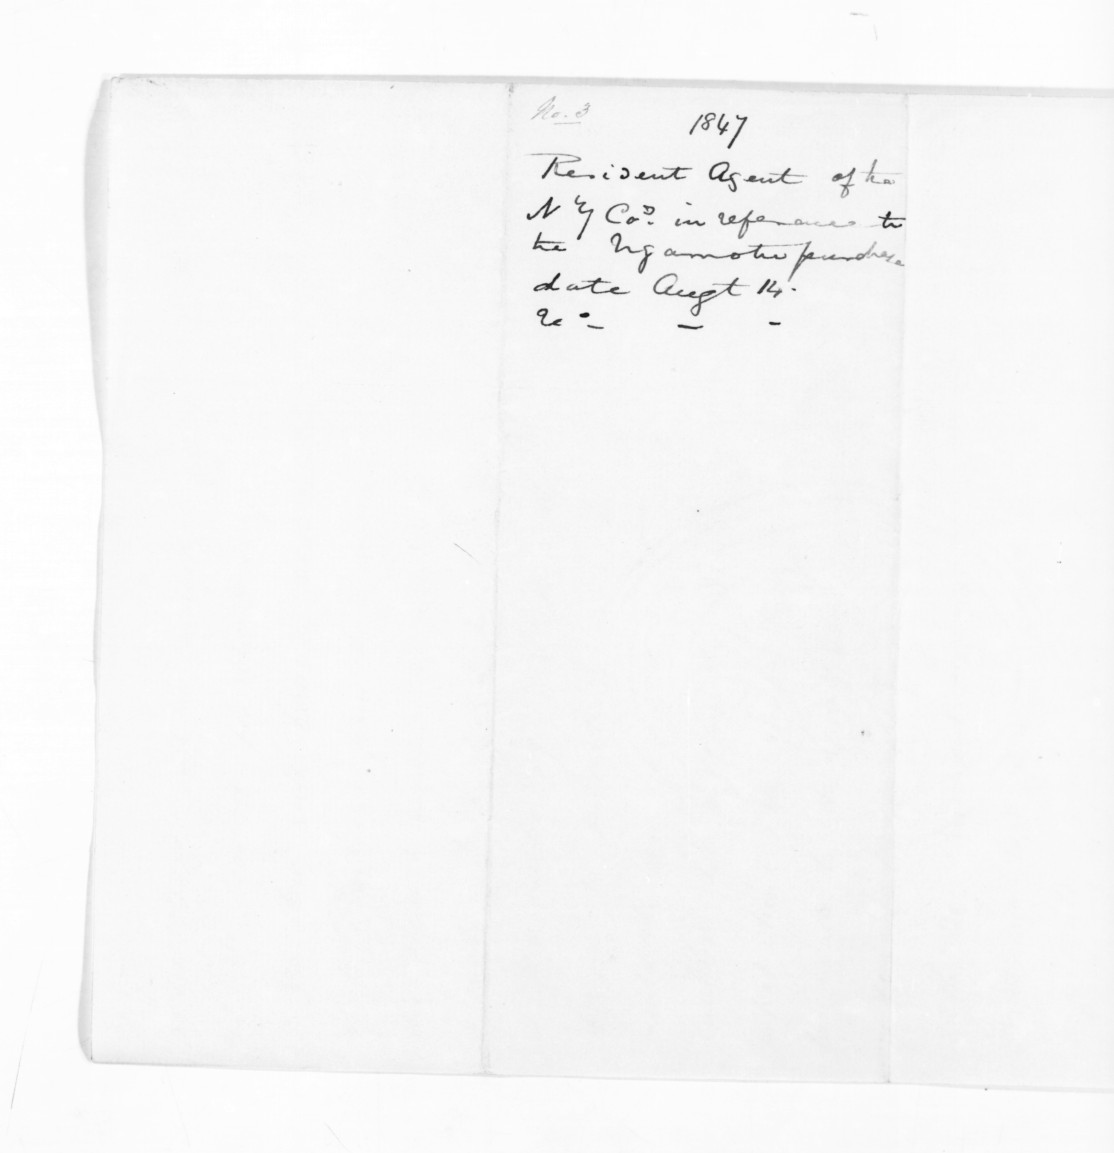 No. 3
1847
Resident Agent of the
N Z Co^s. in reference to
the Ngamotu purchase
date Augt 14.